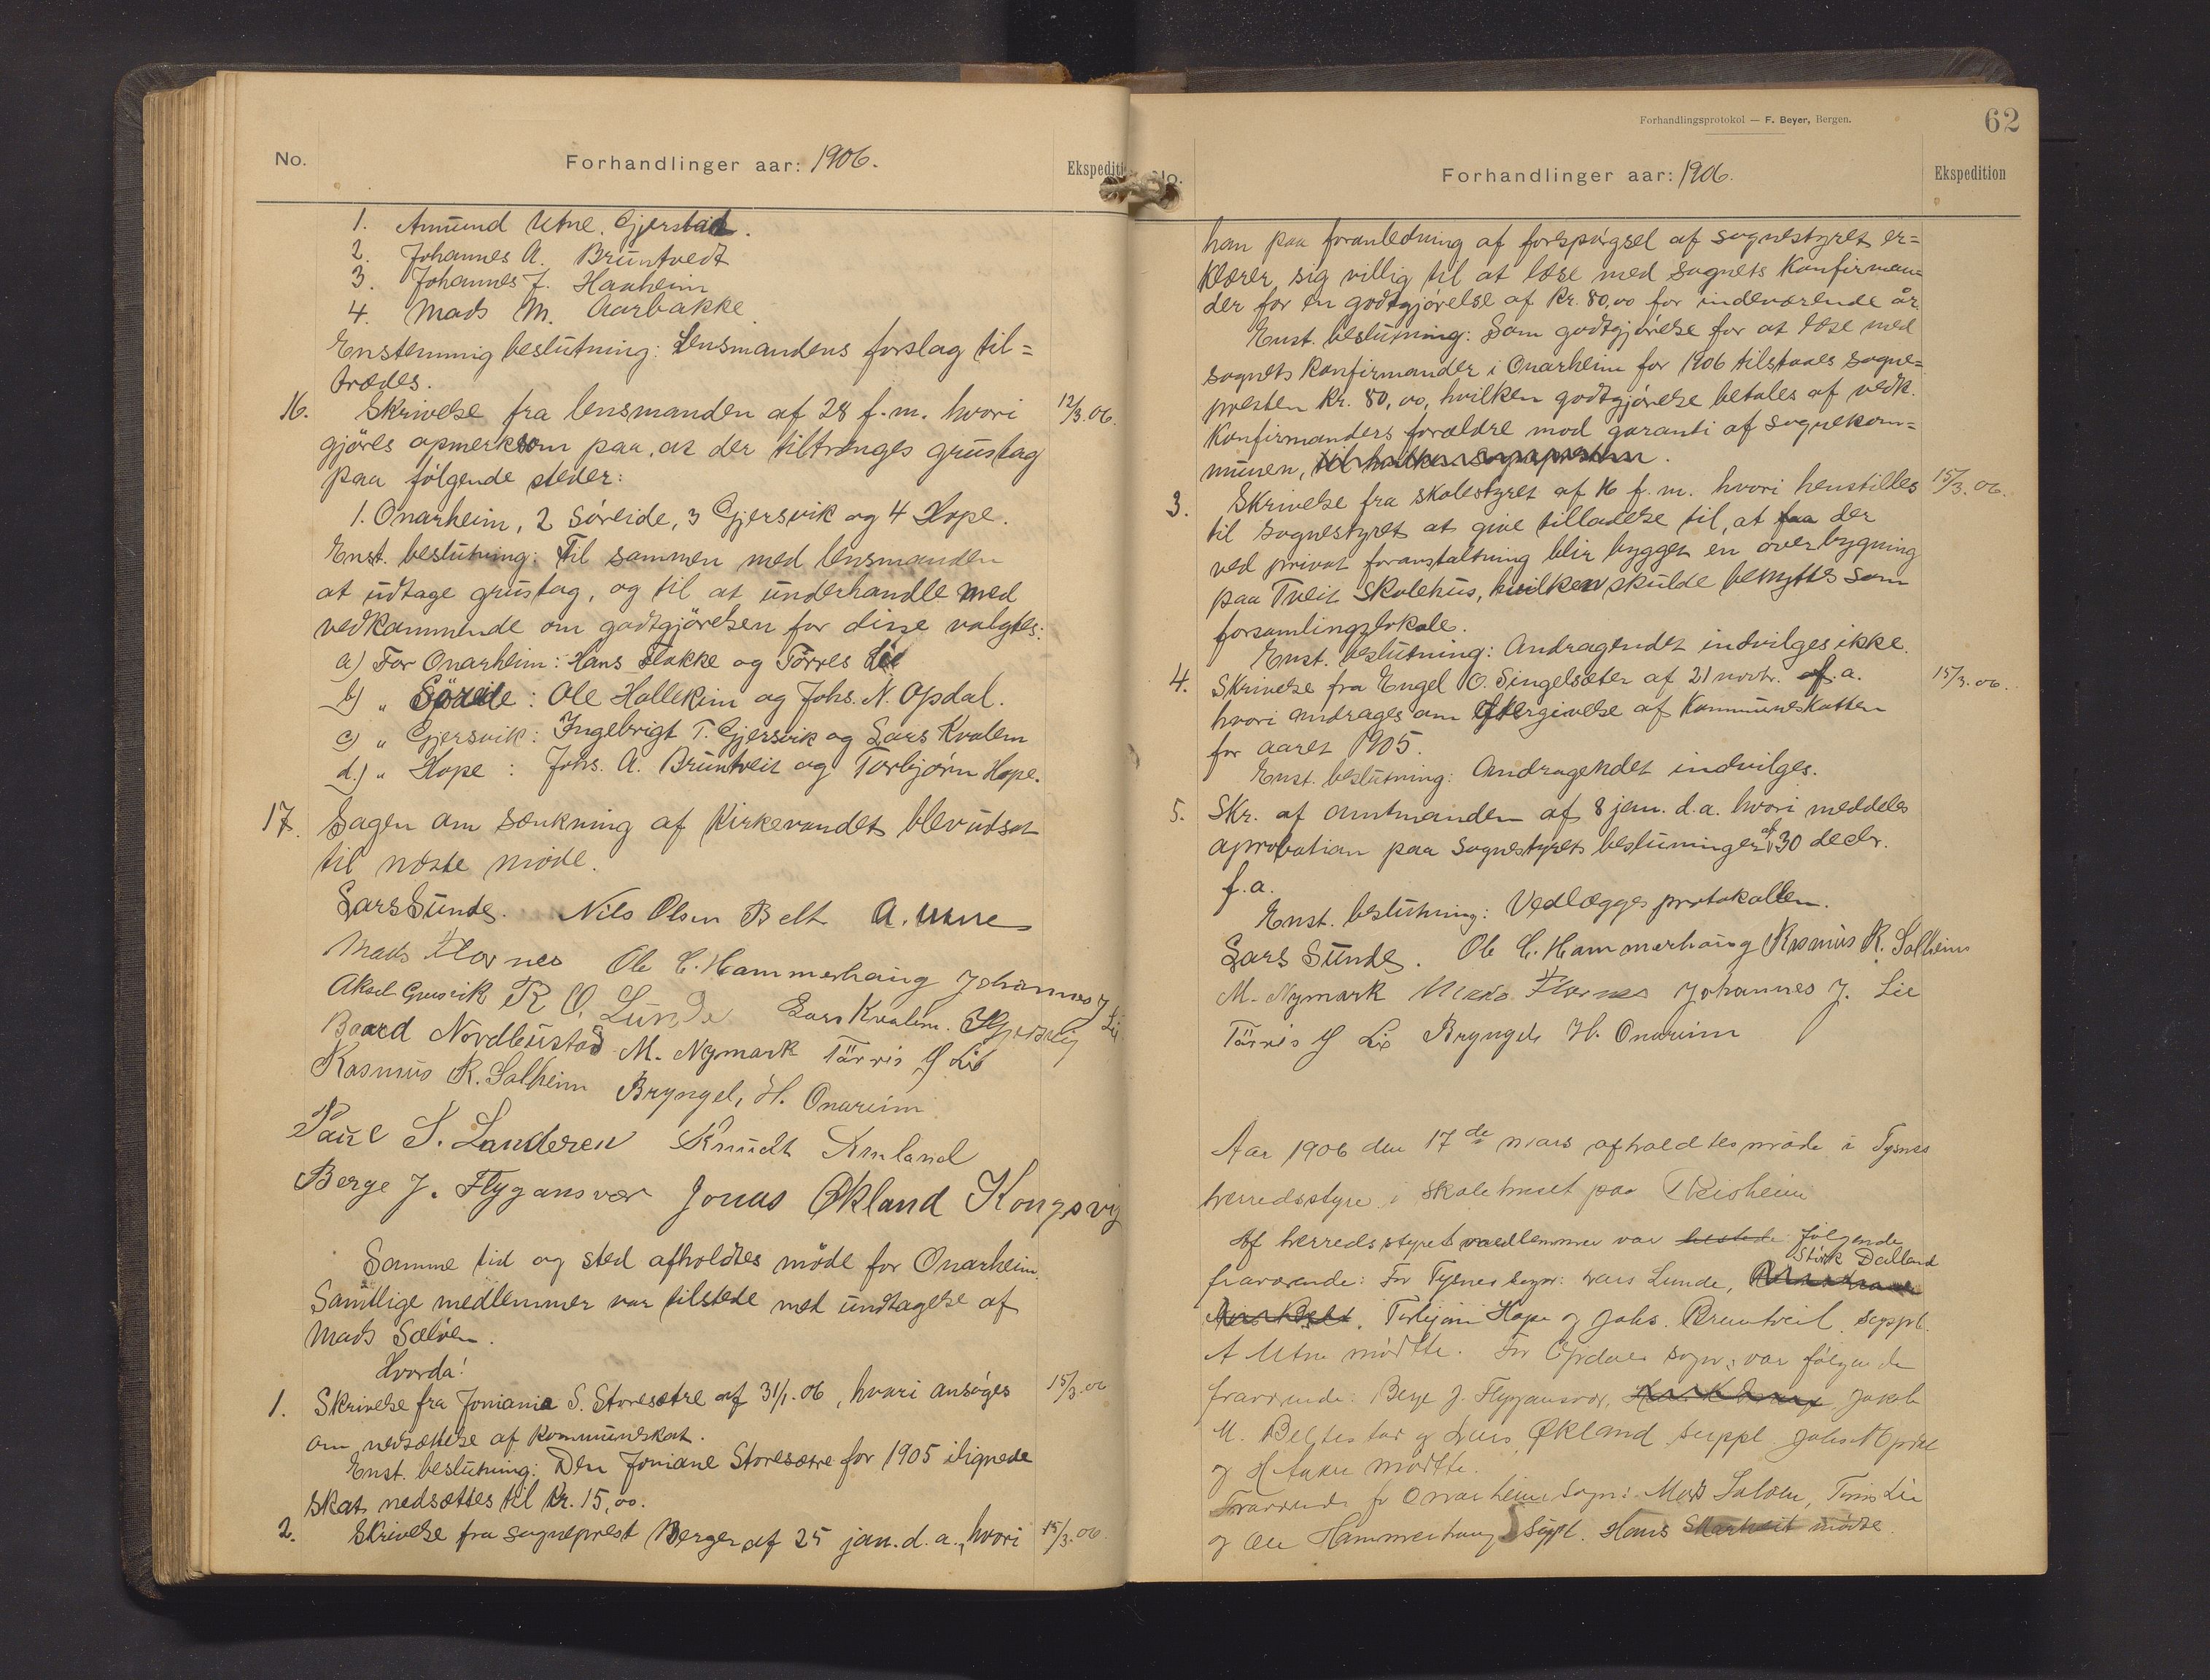 No.
Forhandlinger aar: 1906.
1. Amund Utne, Gjerstad.
2. Johannes A. Bruntvedt
3. Johannes J. Haaheim
4. Mads M. Aarbakke.
Enstemmig beslutning: Lensmandens forslag til=
trædes.
16. Skrivelse fra lensmanden af 28 f.m. hvori 12/3.06.
gjöres opmerksom paa, at der tiltrænges grustag
paa følgende steder:
1. Onarheim, 2 Søreide, 3 Gjersvik og 4 Hope.
Enst. beslutning: Til sammen med lensmanden
at udtage grustag, og til at underhandle med
vedkommende om godtgjörelsen for disse valgtes:
a) For Onarheim: Hans Flakke og Törres Lie
b) " Söreide: Ole Hollekim og Johs. N. Opsdal.
c) " Gjersvik: Ingebrigt T. Gjersvik og Lars Kvalem
d.) " Hope: Johs. A. Bruntveit og Torbjørn Hope.
17. Sagen om sænkning af Kirkevandet blev udsat
til næste møde.
Lars Sunde. Nils Olsen Belt A. Utne
Mads Flornes Ole C. Hammerhaug Johannes J Lie
Aksel Gjersvik R O. Lunde Lars Kvalem.
Baard Nordbustad M. Nymark Törris G Lie
Rasmus R. Solheim Bryngel, H. Onareim
Paul S. Landeren Knudt
Berge J. Flygansvær Jonas Økland Kongsvig
Samme tid og sted afholdtes möde for Onarheim.
Samtlige medlemmer var tilstede med undtagelse af
Mads Sælöen.
Hvorda:
1. Skrivelse fra Joniania S. Storesætre af 31/1.06, hvori ansöges 15/3.06
om nedsættelse af kommuneskat.
Enst. beslutning: Den Joniane Storesætre for 1905 ilignede
skat nedsættes til kr. 15,00.
2. Skrivelse fra sogneprest Berger af 25 jan. d. a., hvori 15/3.06.
Forhandlingsprotokol — F. Beyer, Bergen.
62
Forhandlinger aar: 1906.
Ekspedition
han paa foranledning af forespørgsel af sognestyret er=
klærer sig villig til at læse med sognets konfirman=
der for en godtgjørelse af kr. 80,00 for indeværende år
Enst. beslutning: Som godtgjörelse for at læse med
sognets konfirmander i Onarheim for 1906 tilstaaes sogne=
presten kr. 80,00, hvilken godtgjörelse betales af vedk.
konfirmanders forældre mod garanti af sognekom=
munen,
3. Skrivelse fra skolestyret af 16 f.m. hvori henstilles 15/3.06.
til sognestyret at give tilladelse til, at faa der
ved privat foranstaltning blir bygget en overbygning
paa Tveit Skolehus, hvilken skulde benyttes som
forsamlingslokale.
Enst. beslutning: Andragendet indvilges ikke.
4. Skrivelse fra Engel O. Singelsæter af 21 novbr. f.a. 15/3.06.
hvori andrages om eftergivelse af kommuneskatten
for aaret 1905.
Enst. beslutning: Andragendet indvilges.
5. Skr. af amtmanden af 8 jan. d.a. hvori meddeles
aprobation paa sognestyrets beslutninger af 30 decbr.
f.a.
Enst. beslutning: Vedlægges protokollen.
Lars Sunde. Ole C. Hammerhaug Rasmus R. Solheim
M. Nymark Mads Flornes Johannes J. Lie
Törris G Lie Bryngel, H. Onareim
Aar 1906 den 17de mars afholdtes møde i Tysnes
herredsstyre i skolehuset paa
Af herredsstyrets medlemmer var følgende
Störk Dalland
fraværende: For Tysnes sogn: Lars Lunde,
Torbjørn Hope og Johs. Bruntveit suppl.
A Utne mødte. For Opdals sogn: var følgende
fraværende: Berge J. Flygansvær, Jakob
M. Beltestad og Lars Økland suppl Johs N Opdal
og H mødte.
Fraværende for Onarheim sogn: Mads Saløen, Törris Lie
og Ole Hammerhaug suppl. Hans mødte.